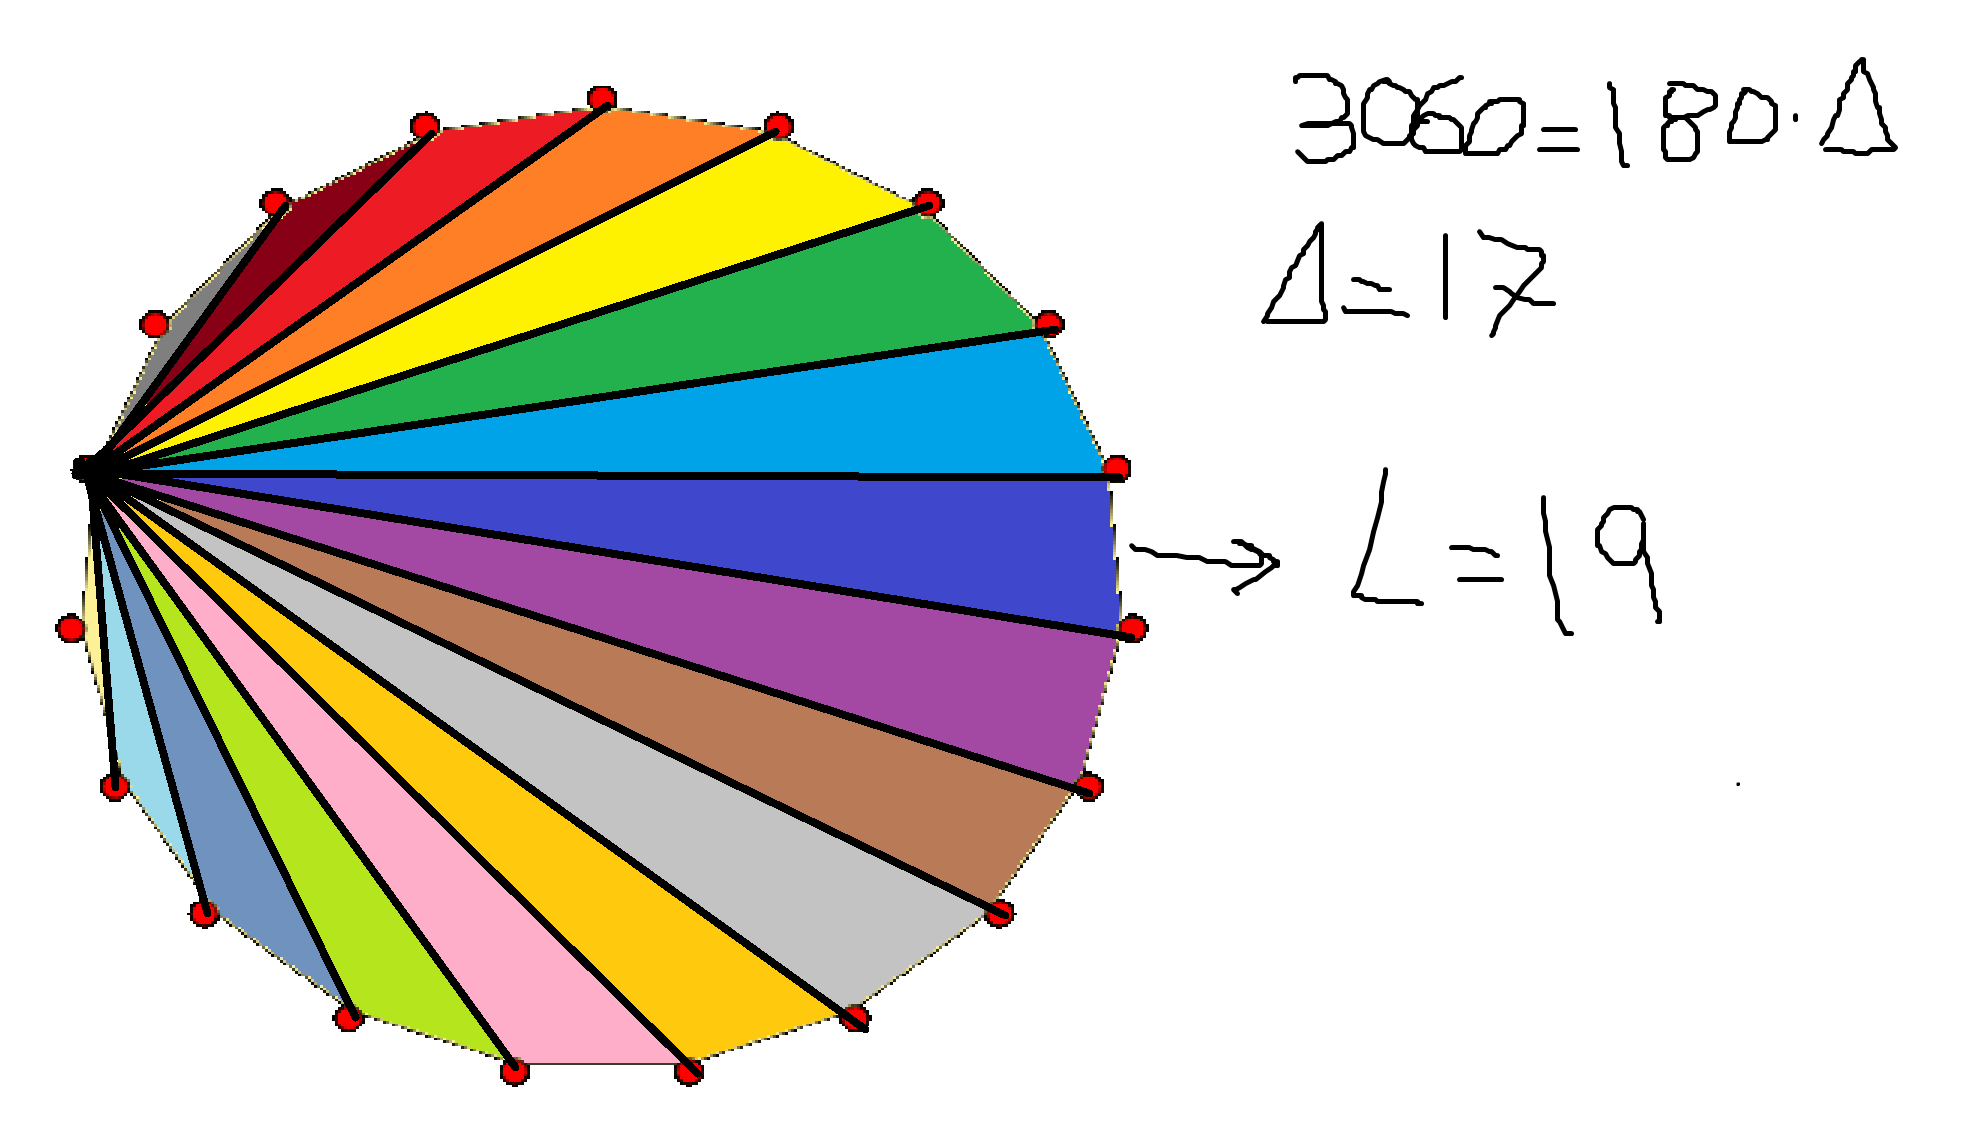 3060=180·Δ
Δ=17
→ L=19